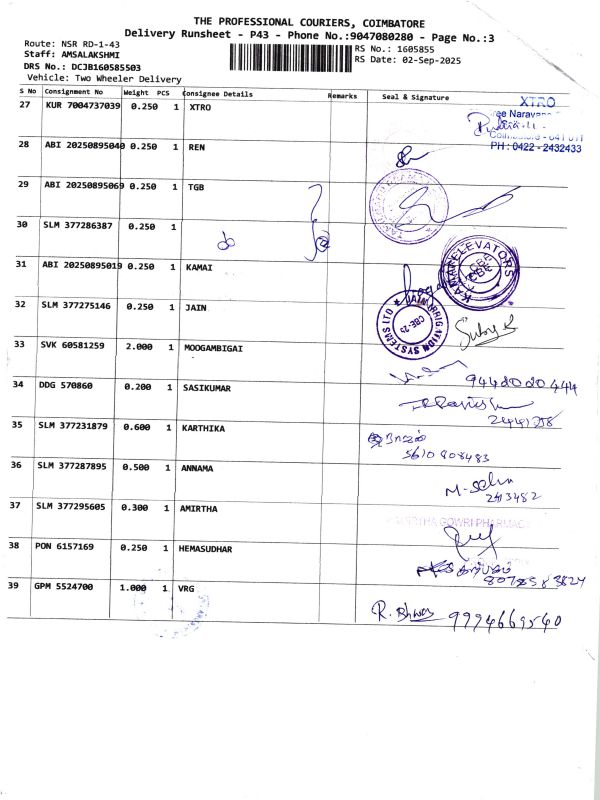 THE PROFESSIONAL COURIERS, COIMBATORE
Delivery Runsheet - P43 - Phone No.:9047080280 - Page No.:3
Route: NSR RD-1-43
RS No.: 1605855
Staff: AMSALAKSHMI
RS Date: 02-Sep-2025
DRS No.: DCJB160585503
Vehicle: Two Wheeler Delivery
S No Consignment No Weight PCS Consignee Details Remarks Seal & Signature
27 KUR 7004737039 0.250 1 XTRO
XTRO
PH : 0422 - 2432433
28 ABI 20250895040 0.250 1 REN
29 ABI 20250895069 0.250 1 TGB
30 SLM 377286387 0.250 1
do
31 ABI 20250895019 0.250 1 KAMAI
KAMAT ELEVATORS
CBE
32 SLM 377275146 0.250 1 JAIN
JAIN IRRIGATION SYSTEMS LTD
CBE-29
33 SVK 60581259 2.000 1 MOOGAMBIGAI
34 DDG 570860 0.200 1 SASIKUMAR
35 SLM 377231879 0.600 1 KARTHIKA
5610 808483
36 SLM 377287895 0.500 1 ANNAMA
2413482
37 SLM 377295605 0.300 1 AMIRTHA
GOWRI PHARMACY
38 PON 6157169 0.250 1 HEMASUDHAR
39 GPM 5524700 1.000 1 VRG
9994669540